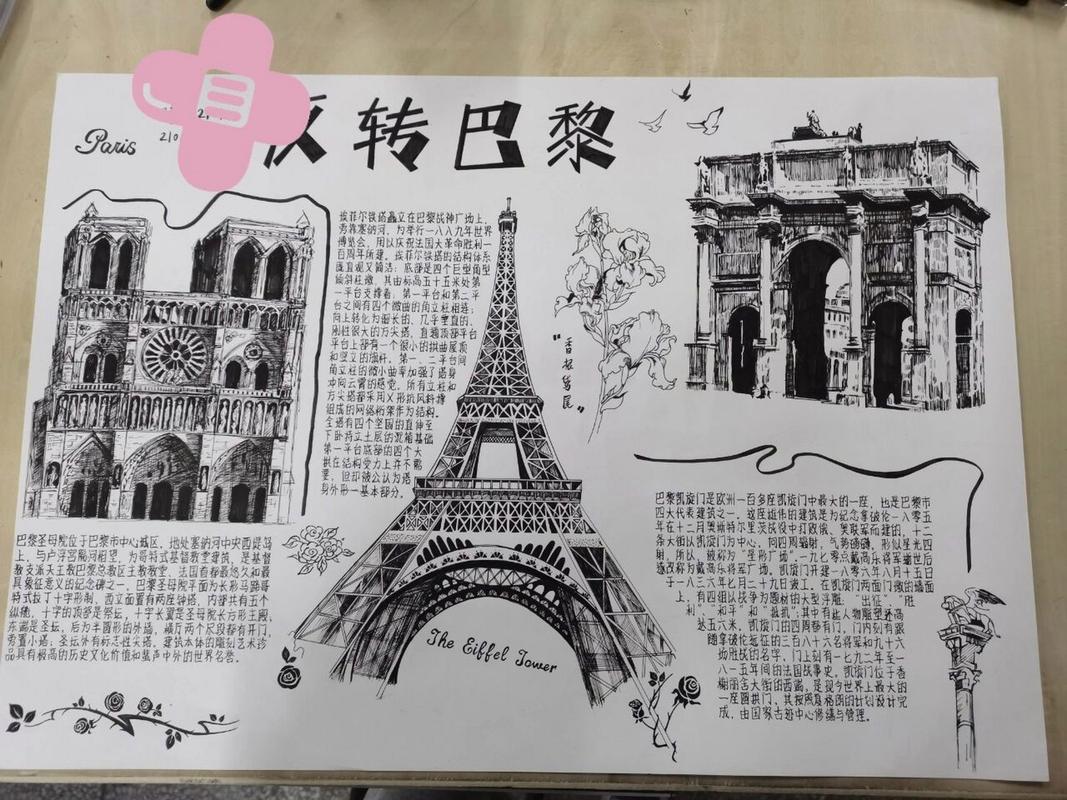 Paris
反转巴黎
埃菲尔铁塔矗立在巴黎战神广场上，
秀靠塞纳河，为举行一八八九年世界
博览会，用以庆祝法国大革命胜利一
百周年所建。埃菲尔铁塔的结构体系
既直观又简洁：底部是四个巨型角型
倾斜柱墩，其由标高五十五米处第
一平台支撑着，第一平台和第二平
台之间有四个微曲的角立柱相连；
向上转化为细长的、几乎垂直的、
刚性很大的方尖塔，直达顶部平台
平台上部有一个很小的拱曲屋顶
和竖立的旗杆。第一、二平台间
角立柱的微小曲率加强了塔身
冲向云霄的感觉。所有立柱和
方尖塔都采用X形抗风斜撑
组成的网络桁架作为结构。
全塔有四个坚固的直伸至
下卧持立土层的沉箱基础
第一平台底部的四个大
拱在结构受力上并不需
要，但却被公认为塔
身外形一基本部分。
"香根鸢尾"
巴黎圣母院位于巴黎市中心城区，地处塞纳河中央西堤岛
上，与卢浮宫隔河相望，为哥特式基督教堂建筑，是基督
教支派天主教巴黎总教区主教教堂，法国首都最悠久和最
具象征意义的纪念碑之一。巴黎圣母院平面为长形马蹄哥
特式拉丁十字形制，西立面置有两座钟塔，内部共有五个
纵廊，十字的顶部是祭坛，十字长翼是圣母院长方形主殿，
东端是圣坛，后为半圆形的外墙，横厅两个尽段都有开门
秀置小塔。圣坛外有标志性尖塔。建筑本体的雕刻艺术珍
品具有极高的历史文化价值和蜚声中外的世界名誉。
The Eiffel Tower
巴黎凯旋门是欧洲一百多座凯旋门中最大的一座，也是巴黎市
四大代表建筑之一，这座雄伟的建筑是为纪念拿破伦一八零五
年在十二月奥斯特尔里茨战役中打败俄、奥联军而建的，十二
条大街以凯旋门为中心，向四周辐射，气势磅礴，形似星光四
射，所以，被称为"星形广场"一九七零年戴高乐将军逝世后
遂改称为戴高乐将军广场。凯旋门开建一八零六年八月十五日
于一八三六年七月二十九日竣工，在凯旋门两面门墩的墙面
上，有四组以战争为题材的大型浮雕，"出征""胜
利""和平"和"抵抗"；其中有些人物雕塑还高
达五六米，凯旋门的四周都有门，门内刻有跟
随拿破伦远征的三百八十六名将军和九十六
场胜战的名字，门上刻有一七九二年至一
八一五年间的法国战事史。凯旋门位于香
榭丽舍大街的西端，是现今世界上最大的
一座圆拱门，其按照夏格朗的计划设计完
成，由国家古迹中心修缮与管理。